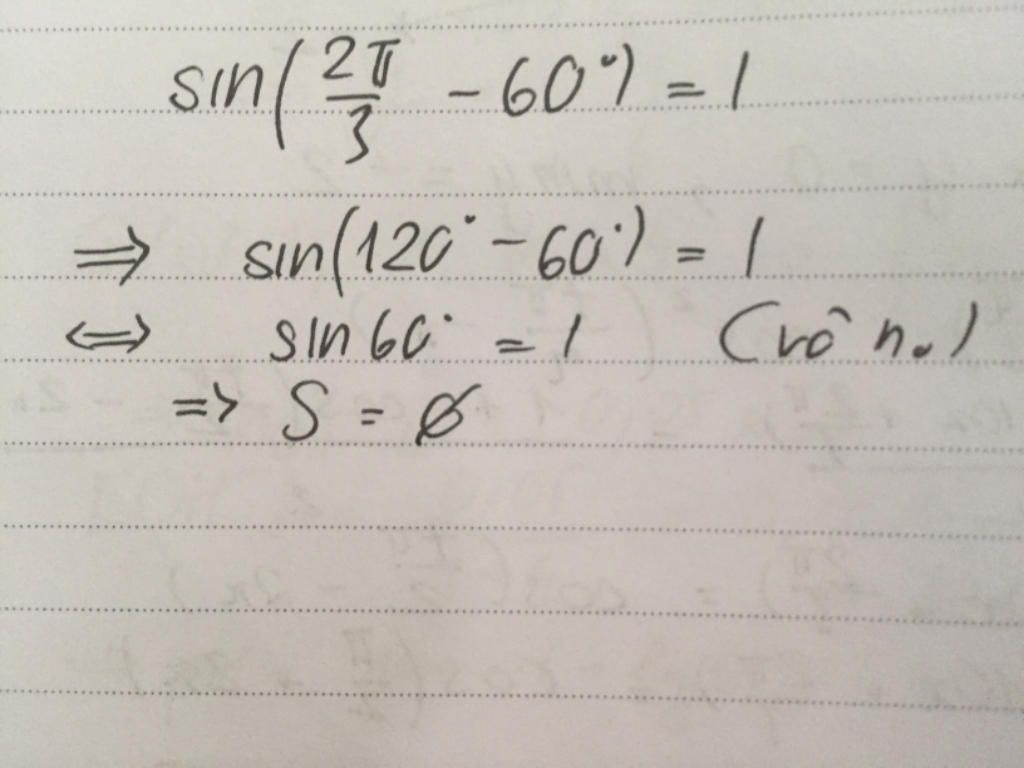 sin(2π/3 - 60°) = 1
⇒ sin(120° - 60°) = 1
⇔ sin 60° = 1 (vô n.)
=> S = ∅